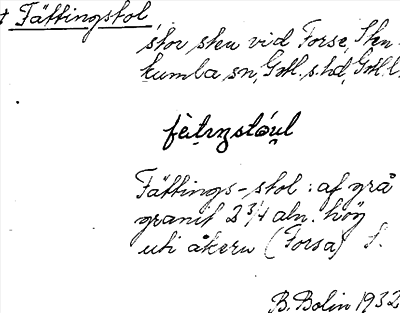 Tättingstol
stor sten vid Forse, Sten-
kumla sn, Gotl. s. hd, Gotl. l.
Tättings-stol: af grå
granit 2 3/4 aln. hög
uti åkern (Forsa) S.
B. Bolin 1932